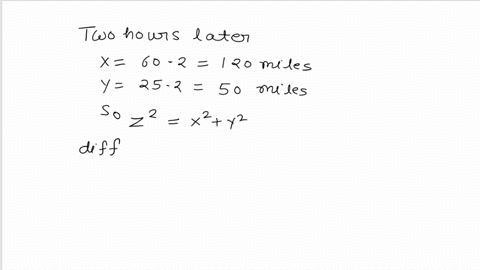 Two hours later
X = 60 · 2 = 120 miles
Y = 25 · 2 = 50 miles
So z² = x² + y²
diff